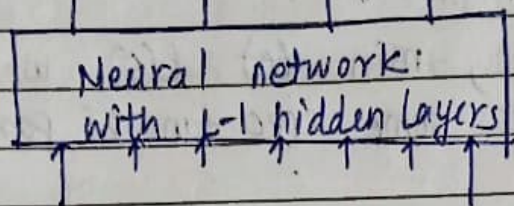 Neural network:
with L-1 hidden layers